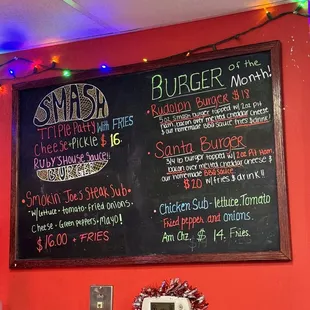 SMASH
Triple Patty with FRIES
Cheese • Pickle $16.
Ruby's House Sauce!!
BURGER
• Smokin Joe's Steak Sub •
w/lettuce • tomato • fried onions •
Cheese • Green peppers • Mayo!
$16.00 • FRIES
BURGER of the
Month!
• Rudolph Burger $18
8oz Smash burger topped w/ 2oz Pit
Ham, bacon over melted cheddar cheese
& our homemade BBQ Sauce fries & drink!
Santa Burger
3/4 lb burger topped w/ 2oz Pit Ham,
bacon over melted cheddar cheese &
our homemade BBQ Sauce.
$20 w/fries & drink!!
• Chicken Sub • lettuce, Tomato
Fried pepper and onions.
Am Chz. $ 14. Fries.